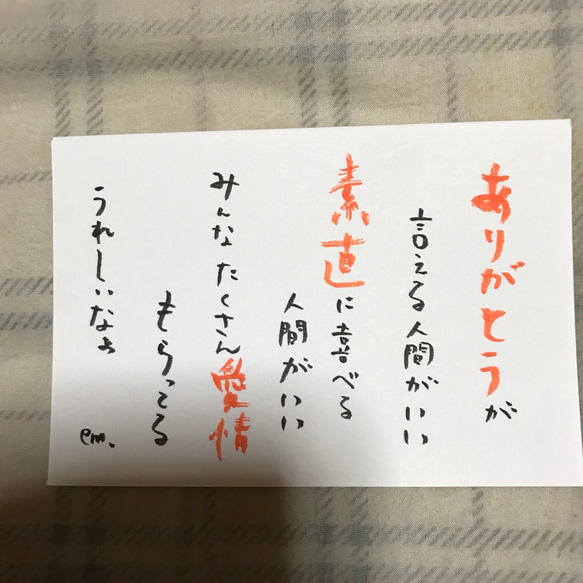 ありがとうが
言える人間がいい
素直に喜べる
人間がいい
みんなたくさん愛情
もらってる
うれしいなぁ
em.